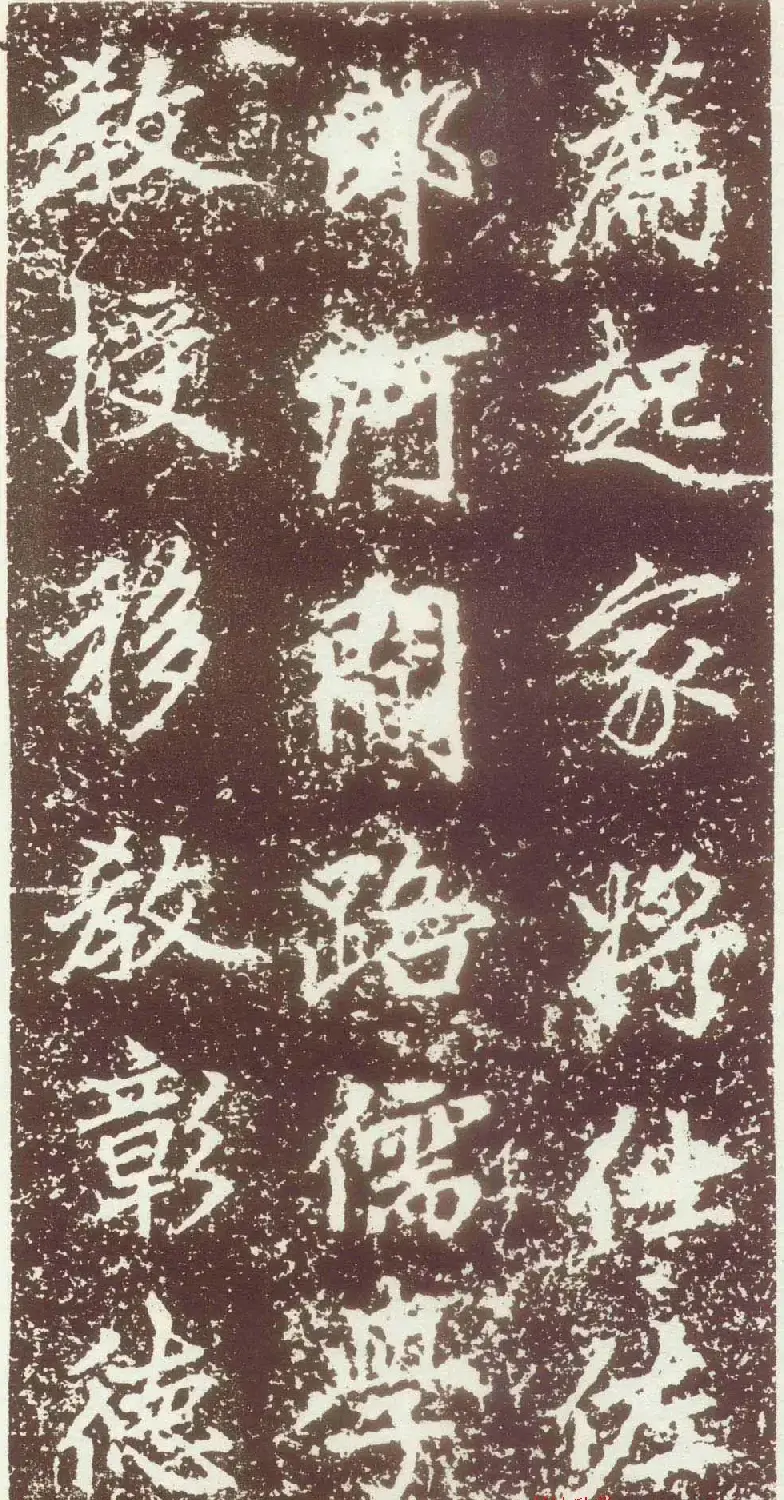 薦起家將仕佐
郎河間路儒學
教授移教彰德